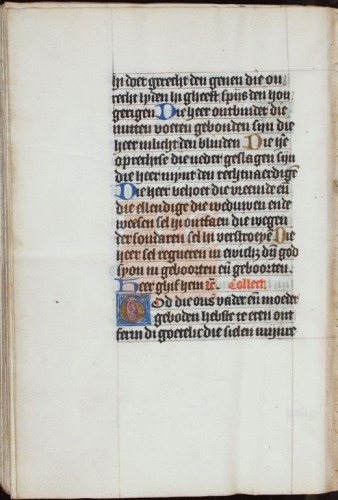 hi doet gerecht den genen die on
recht lyden hi gheeft spijs den hon
gerigen Die heer ontbindet die
mitten voeten gebonden sijn die
heer inlicht den blinden Die he
oprechtse die neder geslagen sijn
die heer mynt den rechtuaerdigē
Die heer behoet die vreemde eñ
die ellendige die weduwen ende
weesen sel in ontfaen die wegen
der sondaren sel hi verstroeyē Die
heer sel regneren in ewich dyn god
syon in geboorten eñ geboorten.
Heer ghif hem Collect
God die ons vader eñ moeder
geboden hebste te eren ont
ferm di goetelic die sielen mijnre